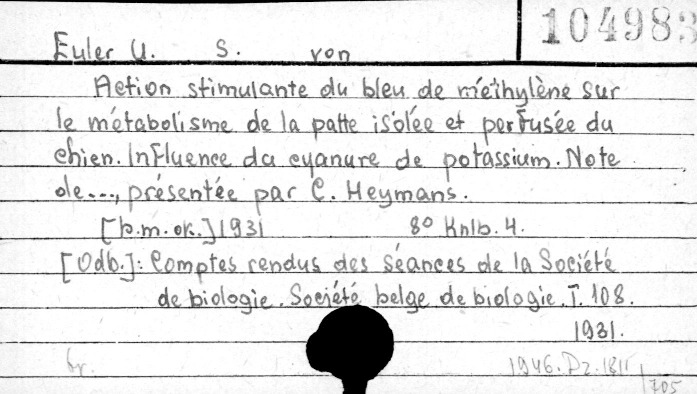 104983
Euler U. S. von
Action stimulante du bleu de méthylène sur
le métabolisme de la patte isolée et perfusée du
chien. Influence du cyanure de potassium. Note
de..., présentée par C. Heymans.
[b.m.ok.] 1931 8° Knlb. 4.
[Odb.]: Comptes rendus des séances de la Société
de biologie. Société belge de biologie. T. 108.
1931.
br. 1946. Dz. 1811
705